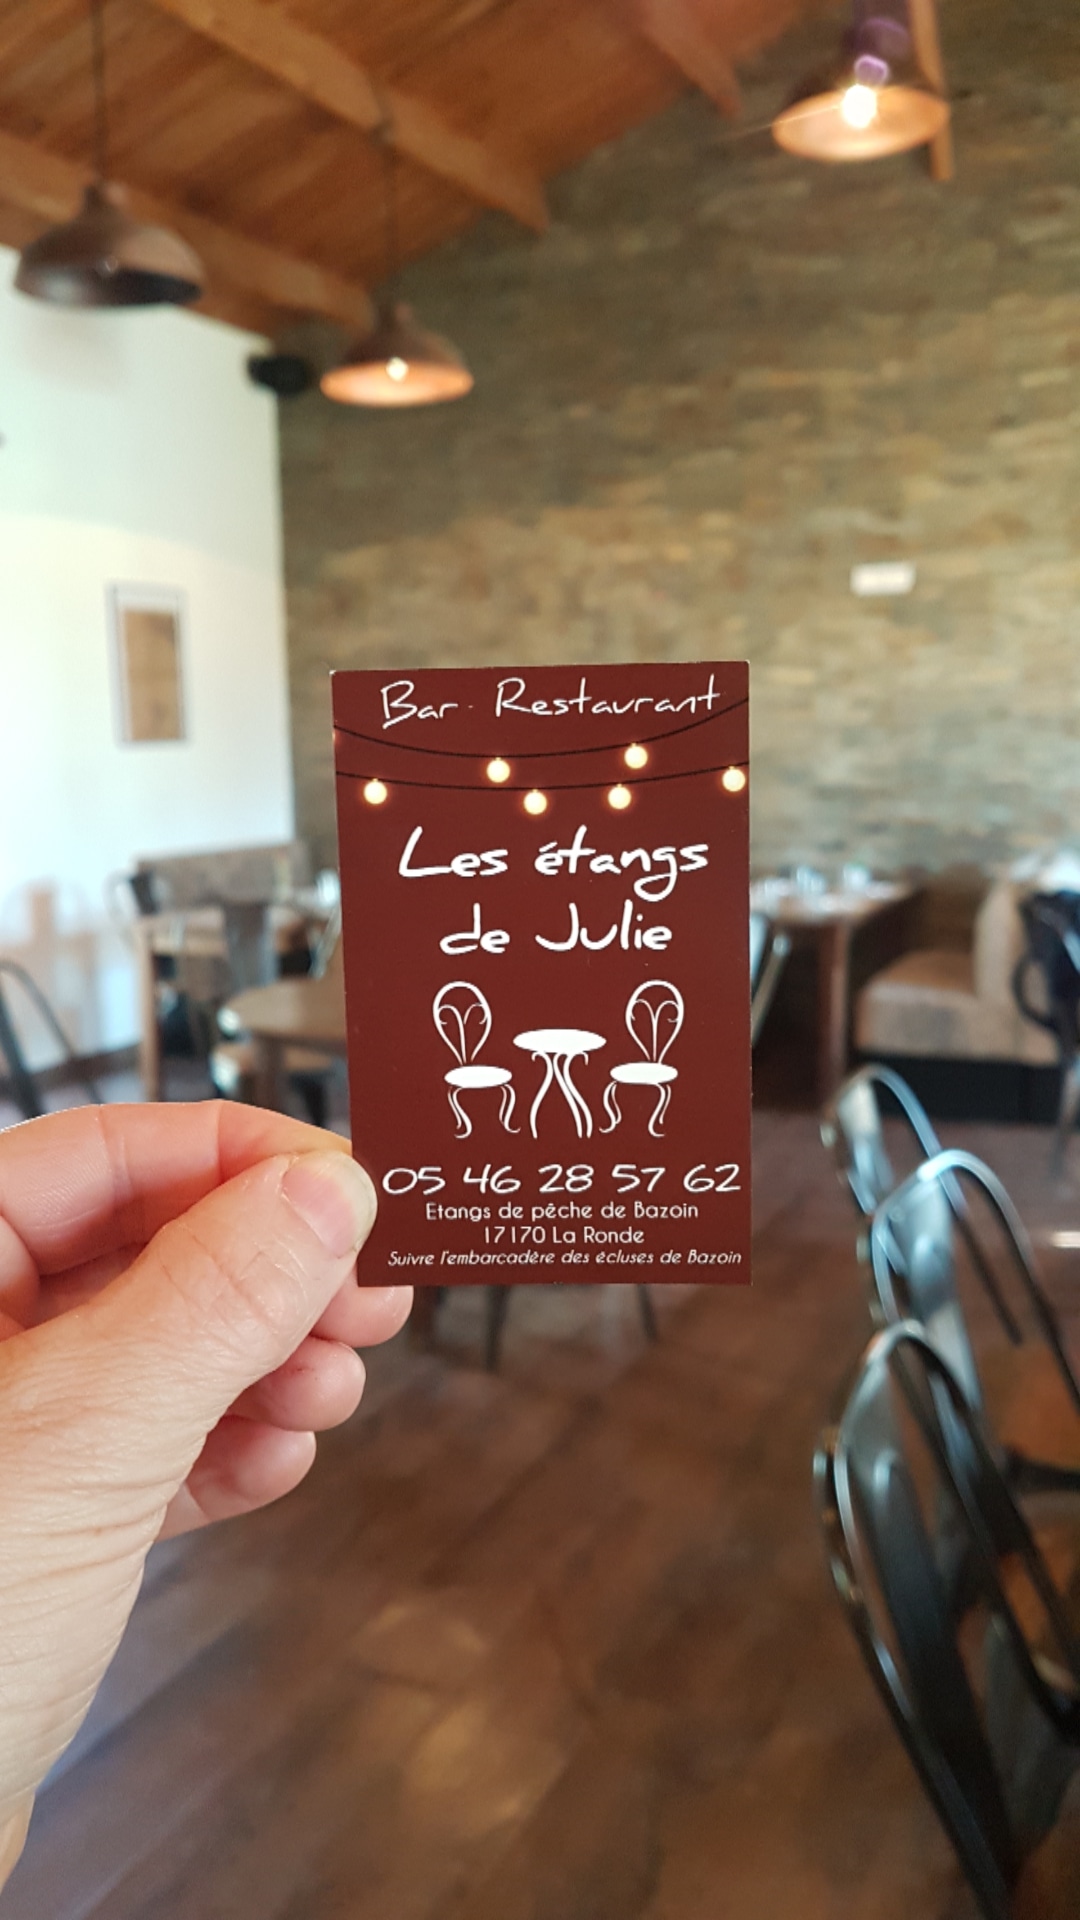 Bar - Restaurant
Les étangs
de Julie
05 46 28 57 62
Etangs de pêche de Bazoin
17170 La Ronde
Suivre l'embarcadère des écluses de Bazoin